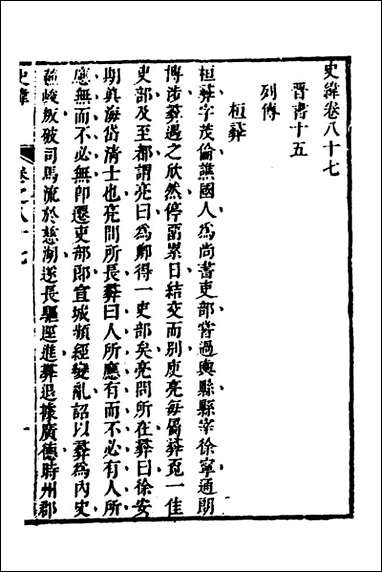 史緯卷八十七
晉書十五
列傳
桓彝
桓彝字茂倫譙國人爲尚書吏部嘗過輿縣縣宰徐寧通朗
博涉彝遇之欣然停留累日結交而別庾亮每屬彝覓一佳
吏部及至都謂亮曰爲卿得一吏部矣亮問所在彝曰徐安
期眞海岱清士也亮問所長彝曰人所應有而不必有人所
應無而不必無卽遷吏部郎宣城頻經變亂詔以彝爲內史
蘇峻叛破司馬流於慈湖遂長驅逕進彝退據廣德時州郡
史緯
卷之八十七
一